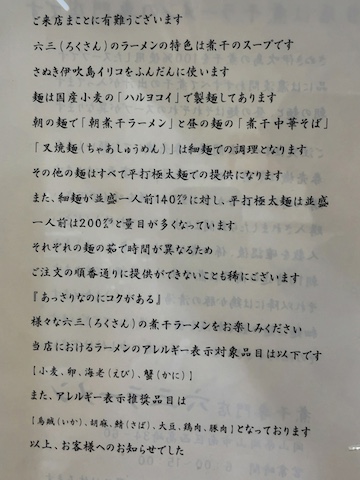 ご来店まことに有難うございます
六三（ろくさん）のラーメンの特色は煮干のスープです
さぬき伊吹島イリコをふんだんに使います
麺は国産小麦の「ハルヨコイ」で製麺してあります
朝の麺で「朝煮干ラーメン」と昼の麺の「煮干中華そば」
「叉焼麺（ちゃあしゅうめん）」は細麺での調理となります
その他の麺はすべて平打極太麺での提供になります
また、細麺が並盛一人前140㌘に対し、平打極太麺は並盛
一人前は200㌘と量目が多くなっています
それぞれの麺の茹で時間が異なるため
ご注文の順番通りに提供ができないことも稀にございます
『あっさりなのにコクがある』
様々な六三（ろくさん）の煮干ラーメンをお楽しみください
当店におけるラーメンのアレルギー表示対象品目は以下です
【小麦、卵、海老（えび）、蟹（かに）】
また、アレルギー表示推奨品目は
【烏賊（いか）、胡麻、鯖（さば）、大豆、鶏肉、豚肉】となっております
以上、お客様へのお知らせでした